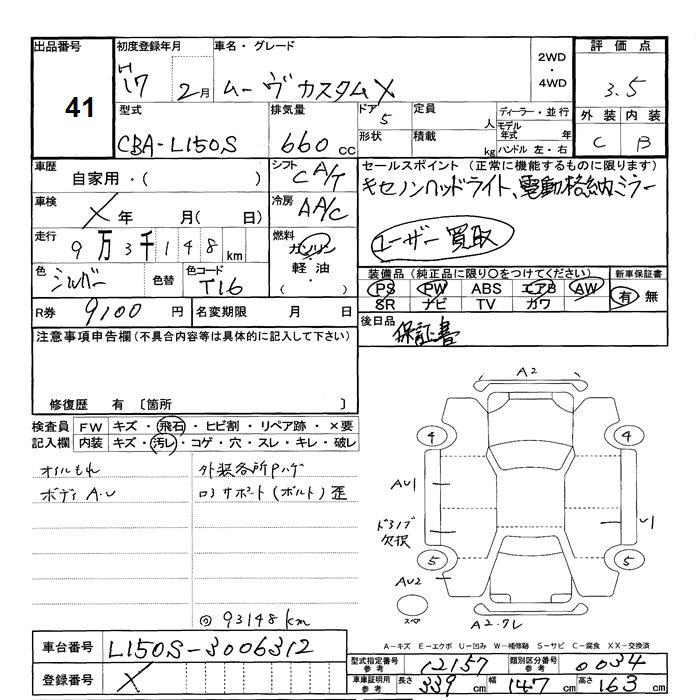 出品番号
41
初度登録年月
H17 2月
車名・グレード
ムーヴ カスタム X
2WD
・
4WD
評価点
3.5
外装 内装
C B
型式
CBA-L150S
排気量
660 cc
ドア
5
形状
定員
人
積載
kg
ディーラー・並行
モデル年式 年
ハンドル 左・右
車歴
自家用・( )
シフト
C A/T
セールスポイント (正常に機能するものに限ります)
キセノンヘッドライト、電動格納ミラー
ユーザー買取
車検
X 年 月( 日)
冷房
AA/C
走行
9万3千148 km
燃料
ガソリン
軽油・
( )
色
シルバー
色替
色コード
T16
装備品(純正品に限り○をつけてください)
PS PW ABS エアB AW
SR ナビ TV カワ
新車保証書
有 無
R券
9100 円
名変期限 月 日
後日品
保証書
注意事項申告欄(不具合内容等は具体的に記入して下さい)
修復歴 有 〔箇所 〕
検査員記入欄
FW キズ・飛石・ヒビ割・リペア跡・×要
内装 キズ・汚レ・コゲ・穴・スレ・キレ・破レ
オイルもれ
ボディ A.U
外装各所Pハゲ
コアサポート(ボルト)歪
◎93148km
A2
4
4
AU1
U1
ドアノブ
欠損
5
5
AU2
スペア
A2.クレ
A-キズ E-エクボ U-凹み W-補修跡 S-サビ C-腐食 XX-交換済
車台番号
L150S-3006312
登録番号
X
型式指定番号
参考
12157
類別区分番号
参考
0034
車庫証明用
参考
長さ 339 cm
幅 147 cm
高さ 163 cm